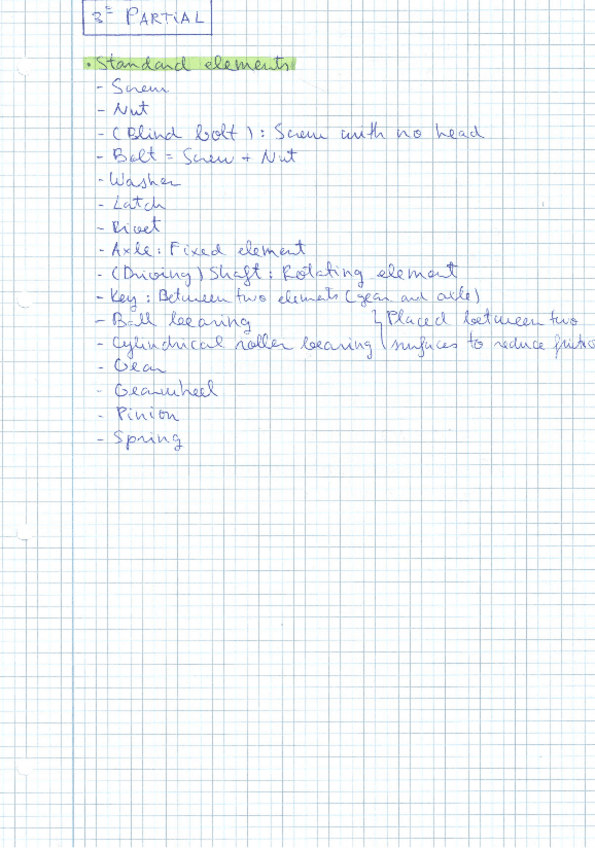 3º PARTIAL
• Standard elements
- Screw
- Nut
- (Blind bolt): Screw with no head
- Bolt = Screw + Nut
- Washer
- Latch
- Rivet
- Axle: Fixed element
- (Driving) Shaft: Rotating element
- Key: Between two elements (gear and axle)
- Ball bearing } Placed between two
- Cylindrical roller bearing surfaces to reduce frictio
- Gear
- Gearwheel
- Pinion
- Spring